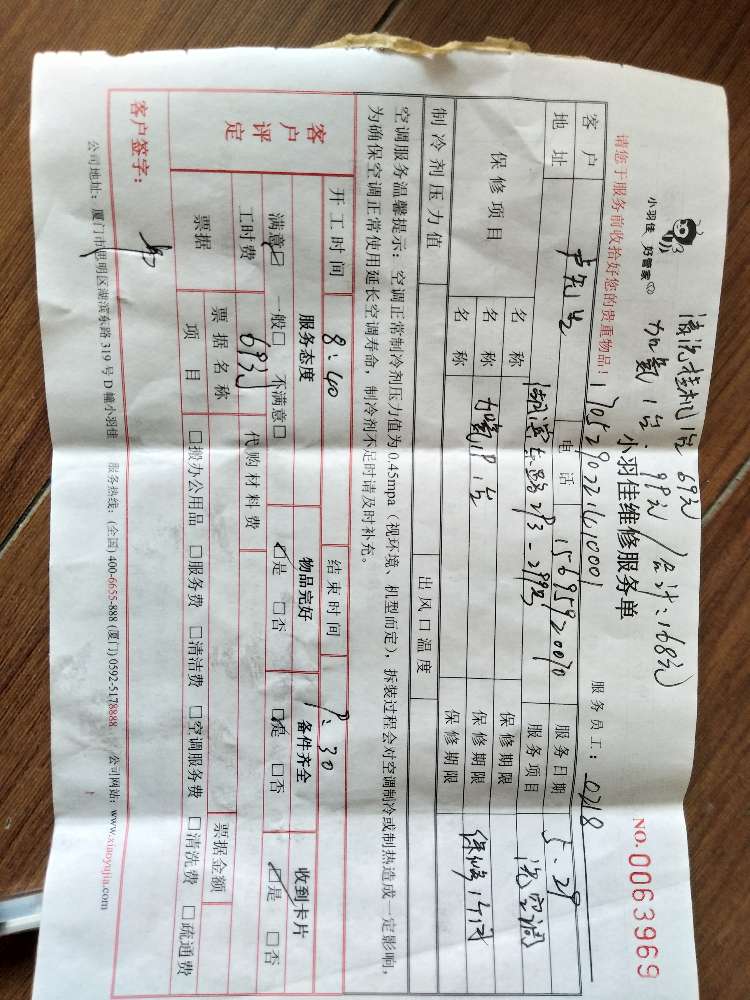 清洗挂机1台 69元
加氨1台 99元/合计:168元
小羽佳 好管家
小羽佳维修服务单
NO.0063969
请您于服务前收拾好您的贵重物品:
服务员工: 0718
客户
电话 15695920070
服务日期 5.29
地址 湖滨东路
服务项目 洗空调
保修项目
名称
保修期限
名称 1台
保修期限 保修1个月
名称
保修期限
制冷剂压力值
出风口温度
空调服务温馨提示:空调正常制冷剂压力值为0.45mpa(视环境、机型而定),拆装过程会对空调制冷或制热造成一定影响,
为确保空调正常使用延长空调寿命,制冷剂不足时请及时补充。
客户评定
开工时间 8:40
结束时间 9:30
服务态度
物品完好
备件齐全
收到卡片
满意☑ 一般□ 不满意□
☑是 □否
☑是 □否
☑是 □否
工时费 69元
代购材料费
票据
票据名称
票据金额
项目
□搬办公用品 □服务费 □清洁费 □空调服务费 □清洗费 □疏通费
客户签字:
公司地址:厦门市思明区湖滨东路319号D幢小羽佳 服务热线:(全国)400-6655-888 (厦门)0592-5178888 公司网站:www.xiaoyujia.com